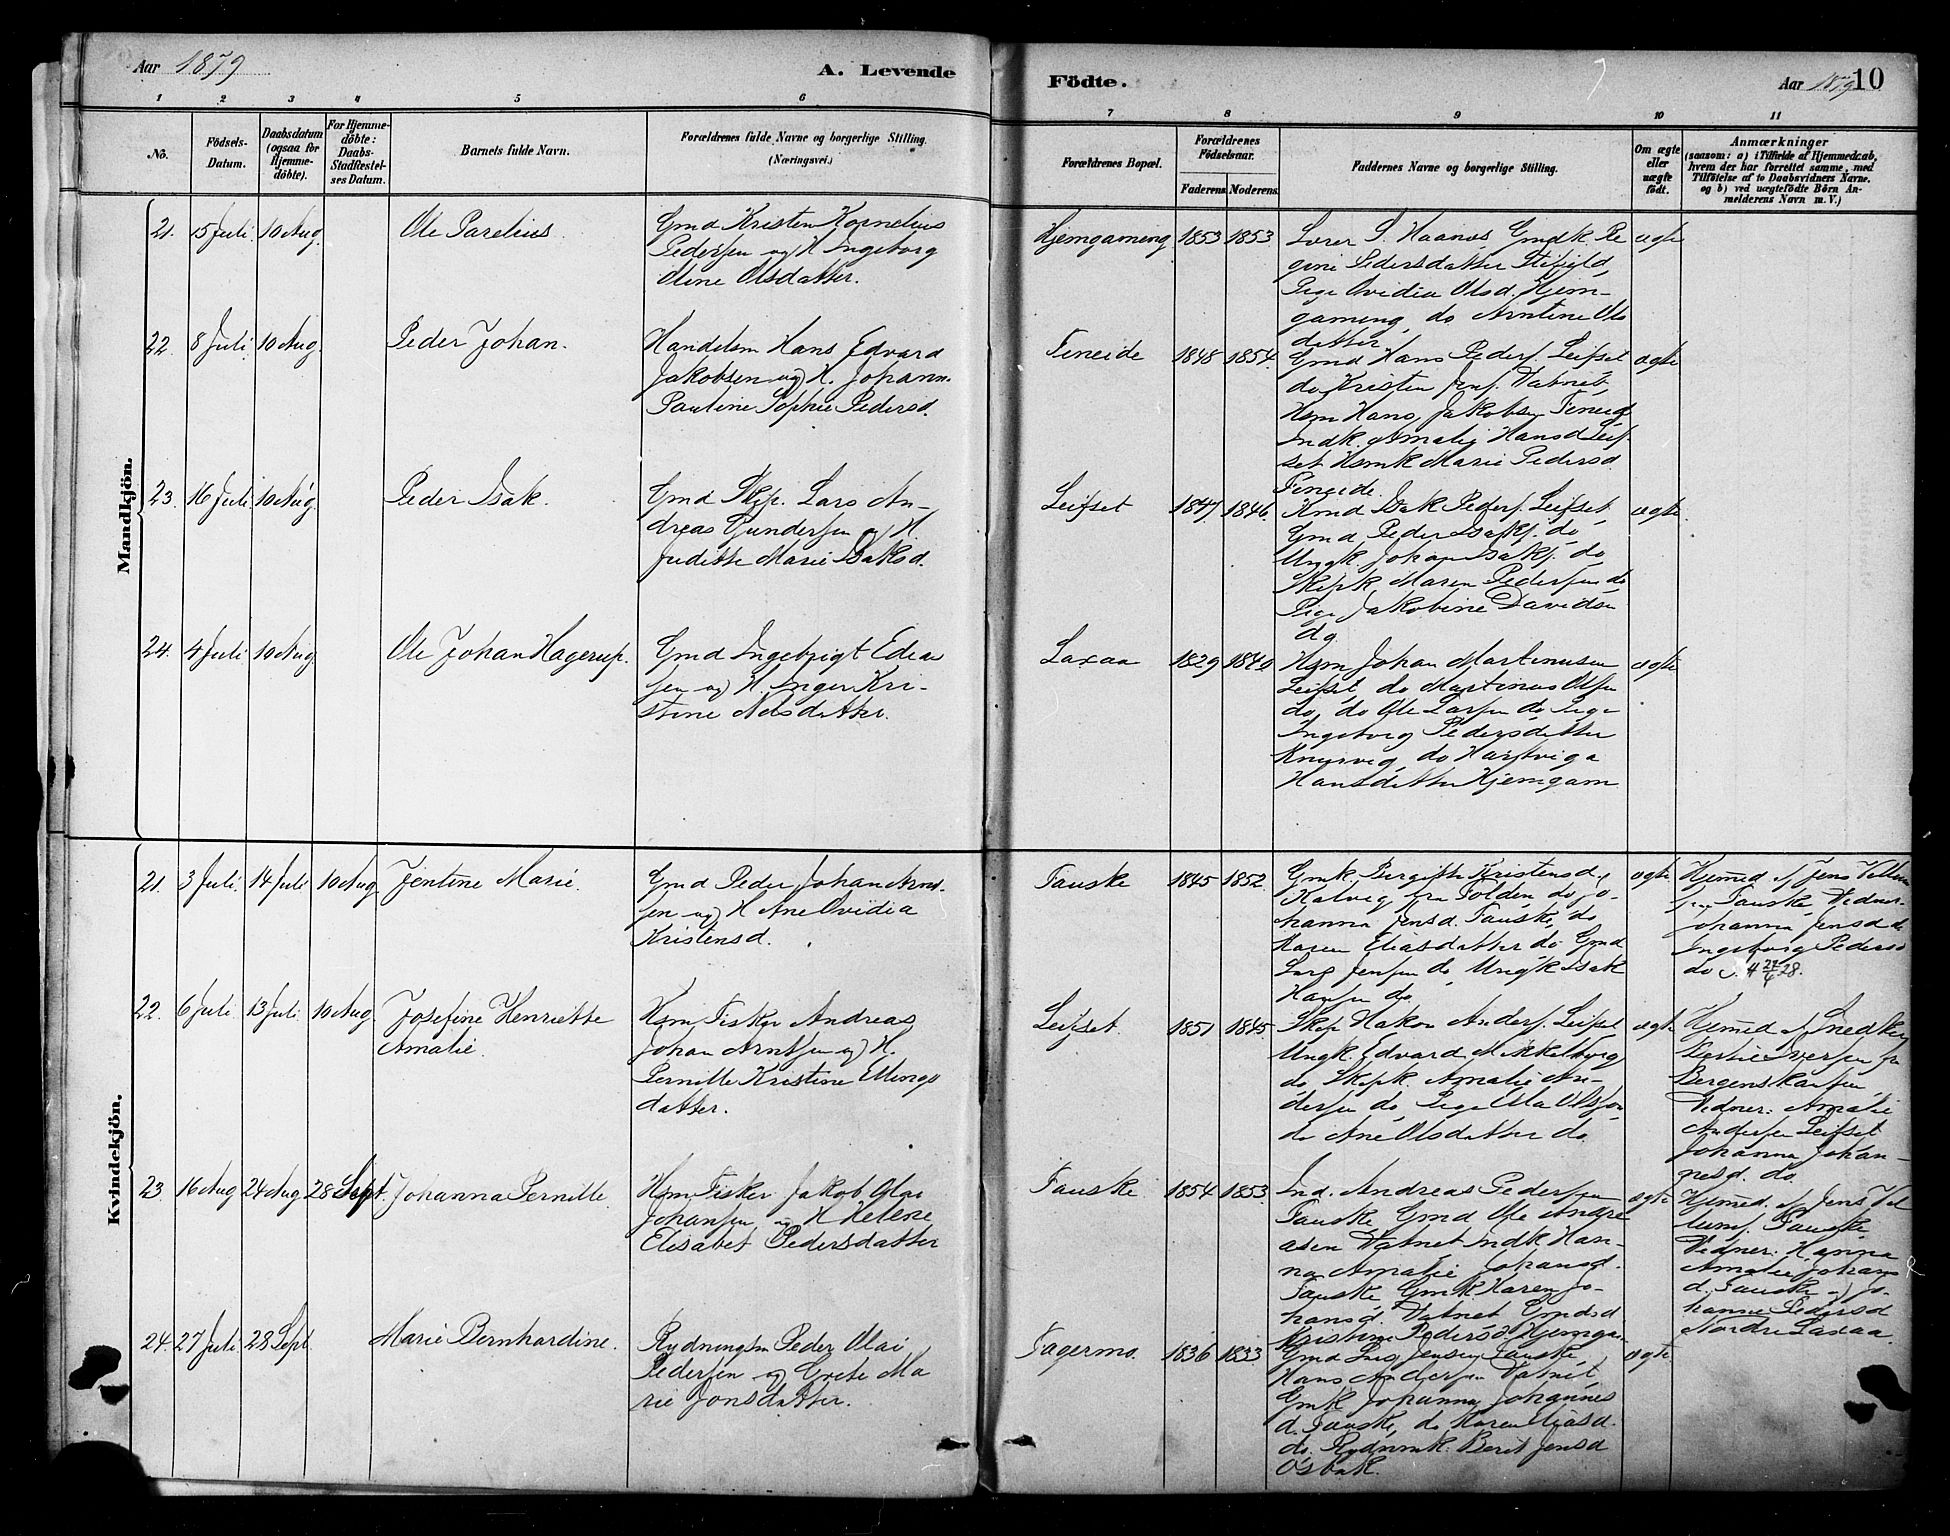 Aar 1879
A. Levende
Födte.
Aar 1879
10
1 2 3 4 5 6
7 8 9 10 11
No.
Födsels-Datum.
Daabsdatum (ogsaa for Hjemme-döbte).
For Hjemme-döbte: Daabs-Stadfæstel-ses Datum.
Barnets fulde Navn.
Forældrenes fulde Navne og borgerlige Stilling.
(Næringsvei.)
Forældrenes Bopæl.
Forældrenes Födselsaar.
Faderens. Moderens.
Faddernes Navne og borgerlige Stilling.
Om ægte eller uægte födt.
Anmærkninger
(saasom: a) i Tilfælde af Hjemmedaab,
hvem der har forrettet samme, med
Tilföielse af to Daabsvidners Navne,
og b) ved uægtefödte Börn An-
melderens Navn m. V.)
Mandkjön.
21. 15 Juli 10 Aug. Ole Parelius.
Gmd Kristen Kornelius
Pedersen og H. Ingeborg
Oline Olsdatter.
Hjemgaming 1853 1853
Lærer S. Haanes, Gmdk. Re
gine Pedersdatter
Pige Ovidia Olsd. Hjem-
gaming, do Arntine Ols
datter
ægte
22. 8 Juli 10 Aug. Peder Johan.
Handelsm Hans Edvard
Jakobsen og H. Johann.
Pauline Sophie Pedersd.
Fineide 1848 1854.
Gmd Hans Peders. Leifset
do Kristen Jens. Vatnet
Hsm Hans Jakobsen Fineid
Indk. Amalie Hansd Leif-
set Hsmk Marie Pedersd
Fineide.
ægte
23. 16 Juli 10 Aug. Peder Isak.
Gmd Skip. Lars An-
dreas Gundersen og H.
Juditte Marie Isaksd.
Leifset 1847. 1846.
Kmd Isak Peders. Leifset
Gmd Peder Isaks. do
Ungk. Johan Isaks. do
Skipk. Maren Pedersen do
Pige Jakobine Davidsen
do
ægte
24. 4 Juli 10 Aug. Ole Johan Hagerup.
Gmd Ingebrigt Edias
sen og H. Inger Kri-
stine Nilsdatter.
Laxaa 1829 1840
Hsm Johan Martinusen
Leifset, do Martinus Olsen
do, do Ole Larsen do Pige
Ingeborg Pedersdatter
do Hartviga
Hansdatter Hjemgam
ægte
Kvindekjön.
21. 3 Juli. 14 Juli 10 Aug. Jentine Marie.
Gmd Peder Johan Arnt-
sen og H Ane Ovidia
Kristensd.
Fauske 1845 1852.
Gmk. Bergitte Kristensd.
Kalvig fra Folden do Jo-
hanna Jensd. Fauske, do
Karen Eliasdatter do Gmd
Lars Jensen do, Ungk Isak
Hansen do
ægte
Hjemmed. af Jens Vellum
sen Fauske Vidner.
Johanna Jensd do
Ingeborg Pedersd
do
22. 6 Juli 13 Juli. 10 Aug. Josefine Henriette
Amalie.
Hsm Fisker Andreas
Johan Arntsen og H.
Pernille Kristine Ellings
datter.
Leifset. 1851 1845.
Skip Hakon Anders. Leifset
Ungk. Edvard Mikkelborg
do Skipk. Amalie An-
dersen do, Pige Ida Olsen
do Ane Olsdatter do
ægte
Hjemmed af Snedker
Iversen fra
Bergenskansen
Vidner: Amalie
Andersen Leifset
Johanna Johan-
nesd. do.
23. 16 Aug 24 Aug 28 Sept. Johanna Pernille
Hsm Fisker Jakob Olai
Johansen og H Helene
Elisabet Pedersdatter
Fauske 1854 1853.
Ind. Andreas Pedersen
Fauske Gmd Ole Andre
asen Vatnet Indk Han-
na Amalie Johansd.
Fauske Gmk Karen Jo-
hansd. Vatnet Gmdsd
Kristine Pedersd Hjemga-
ægte
Hjemmed. af Jens Vel
lums. Fauske.
Vidner: Hanna
Amalie Johans
d. Fauske og Jo-
hanna Pedersd
Nordre Laxaa.
24. 27 Juli 28 Sept Marie Bernhardine.
Rydningsm Peder Olai
Pedersen og Grete Ma
rie Jonsdatter.
Fagermo. 1836 1833
Gmd Lars Jensen Fauske,
Hans Andersen Vatnet
Gmk Johanna Johannes
d. Fauske, do Karen Eliasd.
do. Rydnmk. Berit Jensd
Osbak.
ægte